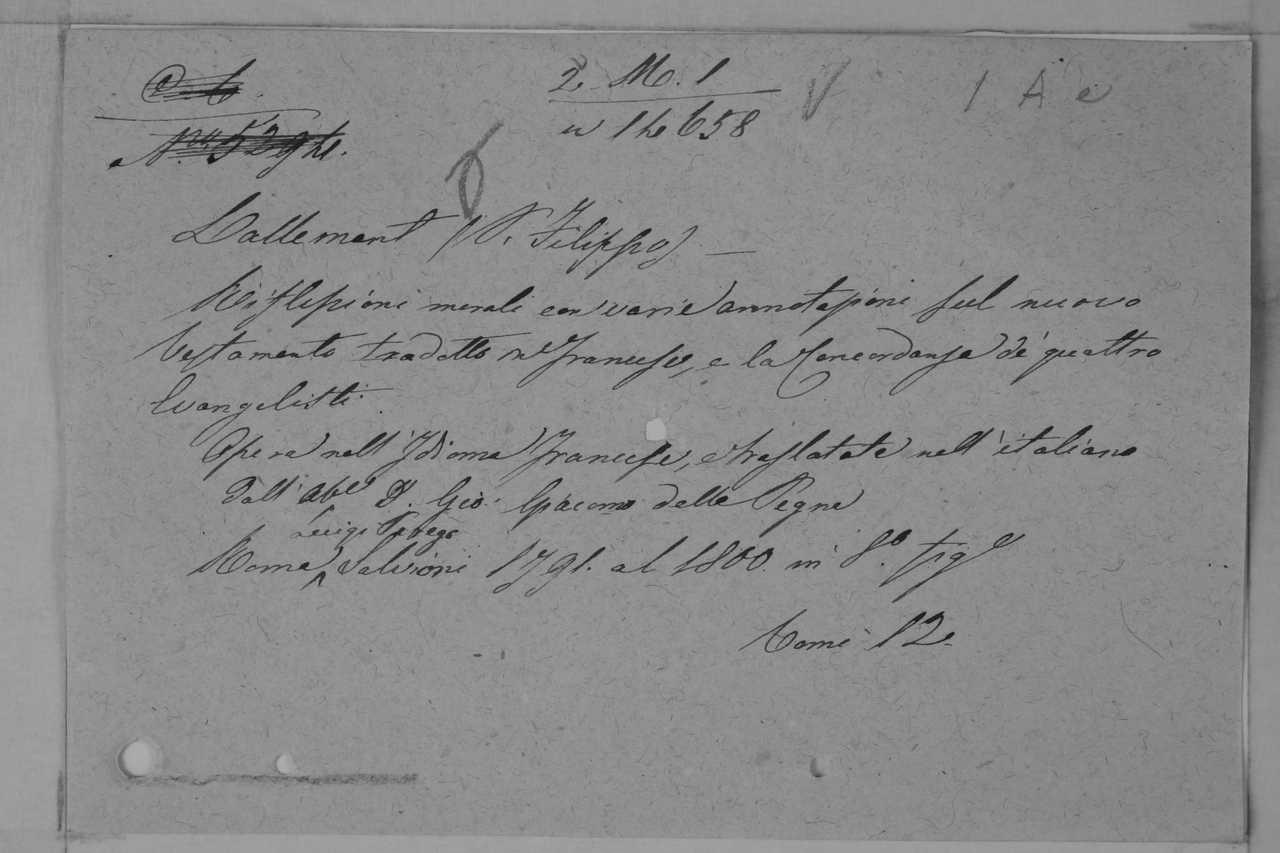 2. M. 1
1 A e
658
Lallemant (P. Filippo) —
Riflessioni morali con varie annotazioni sul nuovo
Testamento tradotto in Francese, e la Concordanza de' quattro
Evangelisti.
Opera nell' Idioma Francese, e traslatate nell' italiano
dall' Abe D. Gio: Giacomo delle Pegne
Luigi Perego
Roma Salvioni 1791. al 1800. in 8º. pg
Tomi 12.